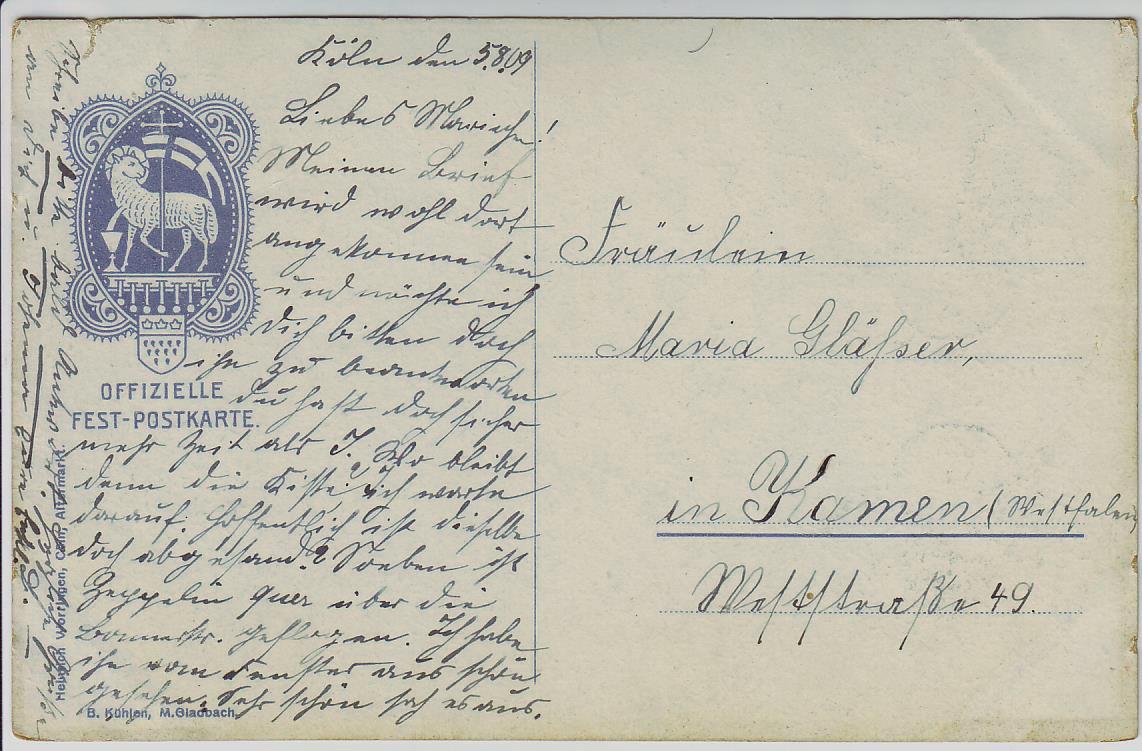 Köln den 5.8.09
Liebes Mariechen!
Meinen Brief
wird wohl dort
angekommen sein
und möchte ich
dich bitten doch
ihn zu beantworten
du hast doch sicher
mehr Zeit als I. Wo bleibt
denn die Kiste? Ich warte
darauf. Hoffentlich ist dieselbe
doch abgesandt? Soeben ist
Zeppelin quer über die
Bonnerstr. geflogen. Ich habe
ihn vom Fenster aus schön
gesehen. Sehr schön sah es aus.
Schreibe bald Antwort. Herzliche Grüße
an dich u.
OFFIZIELLE
FEST-POSTKARTE.
Heinrich Worringen, Cöln, Altermarkt.
B. Kühlen, M.Gladbach.
Fräulein
Maria Gläßer,
in Kamen (Westfalen)
Weststraße 49.